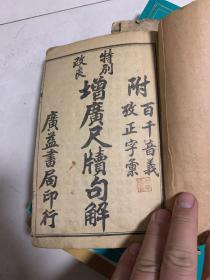 特別
改良
增廣尺牘句解
附
百千音義
攷正字彙
廣益書局印行